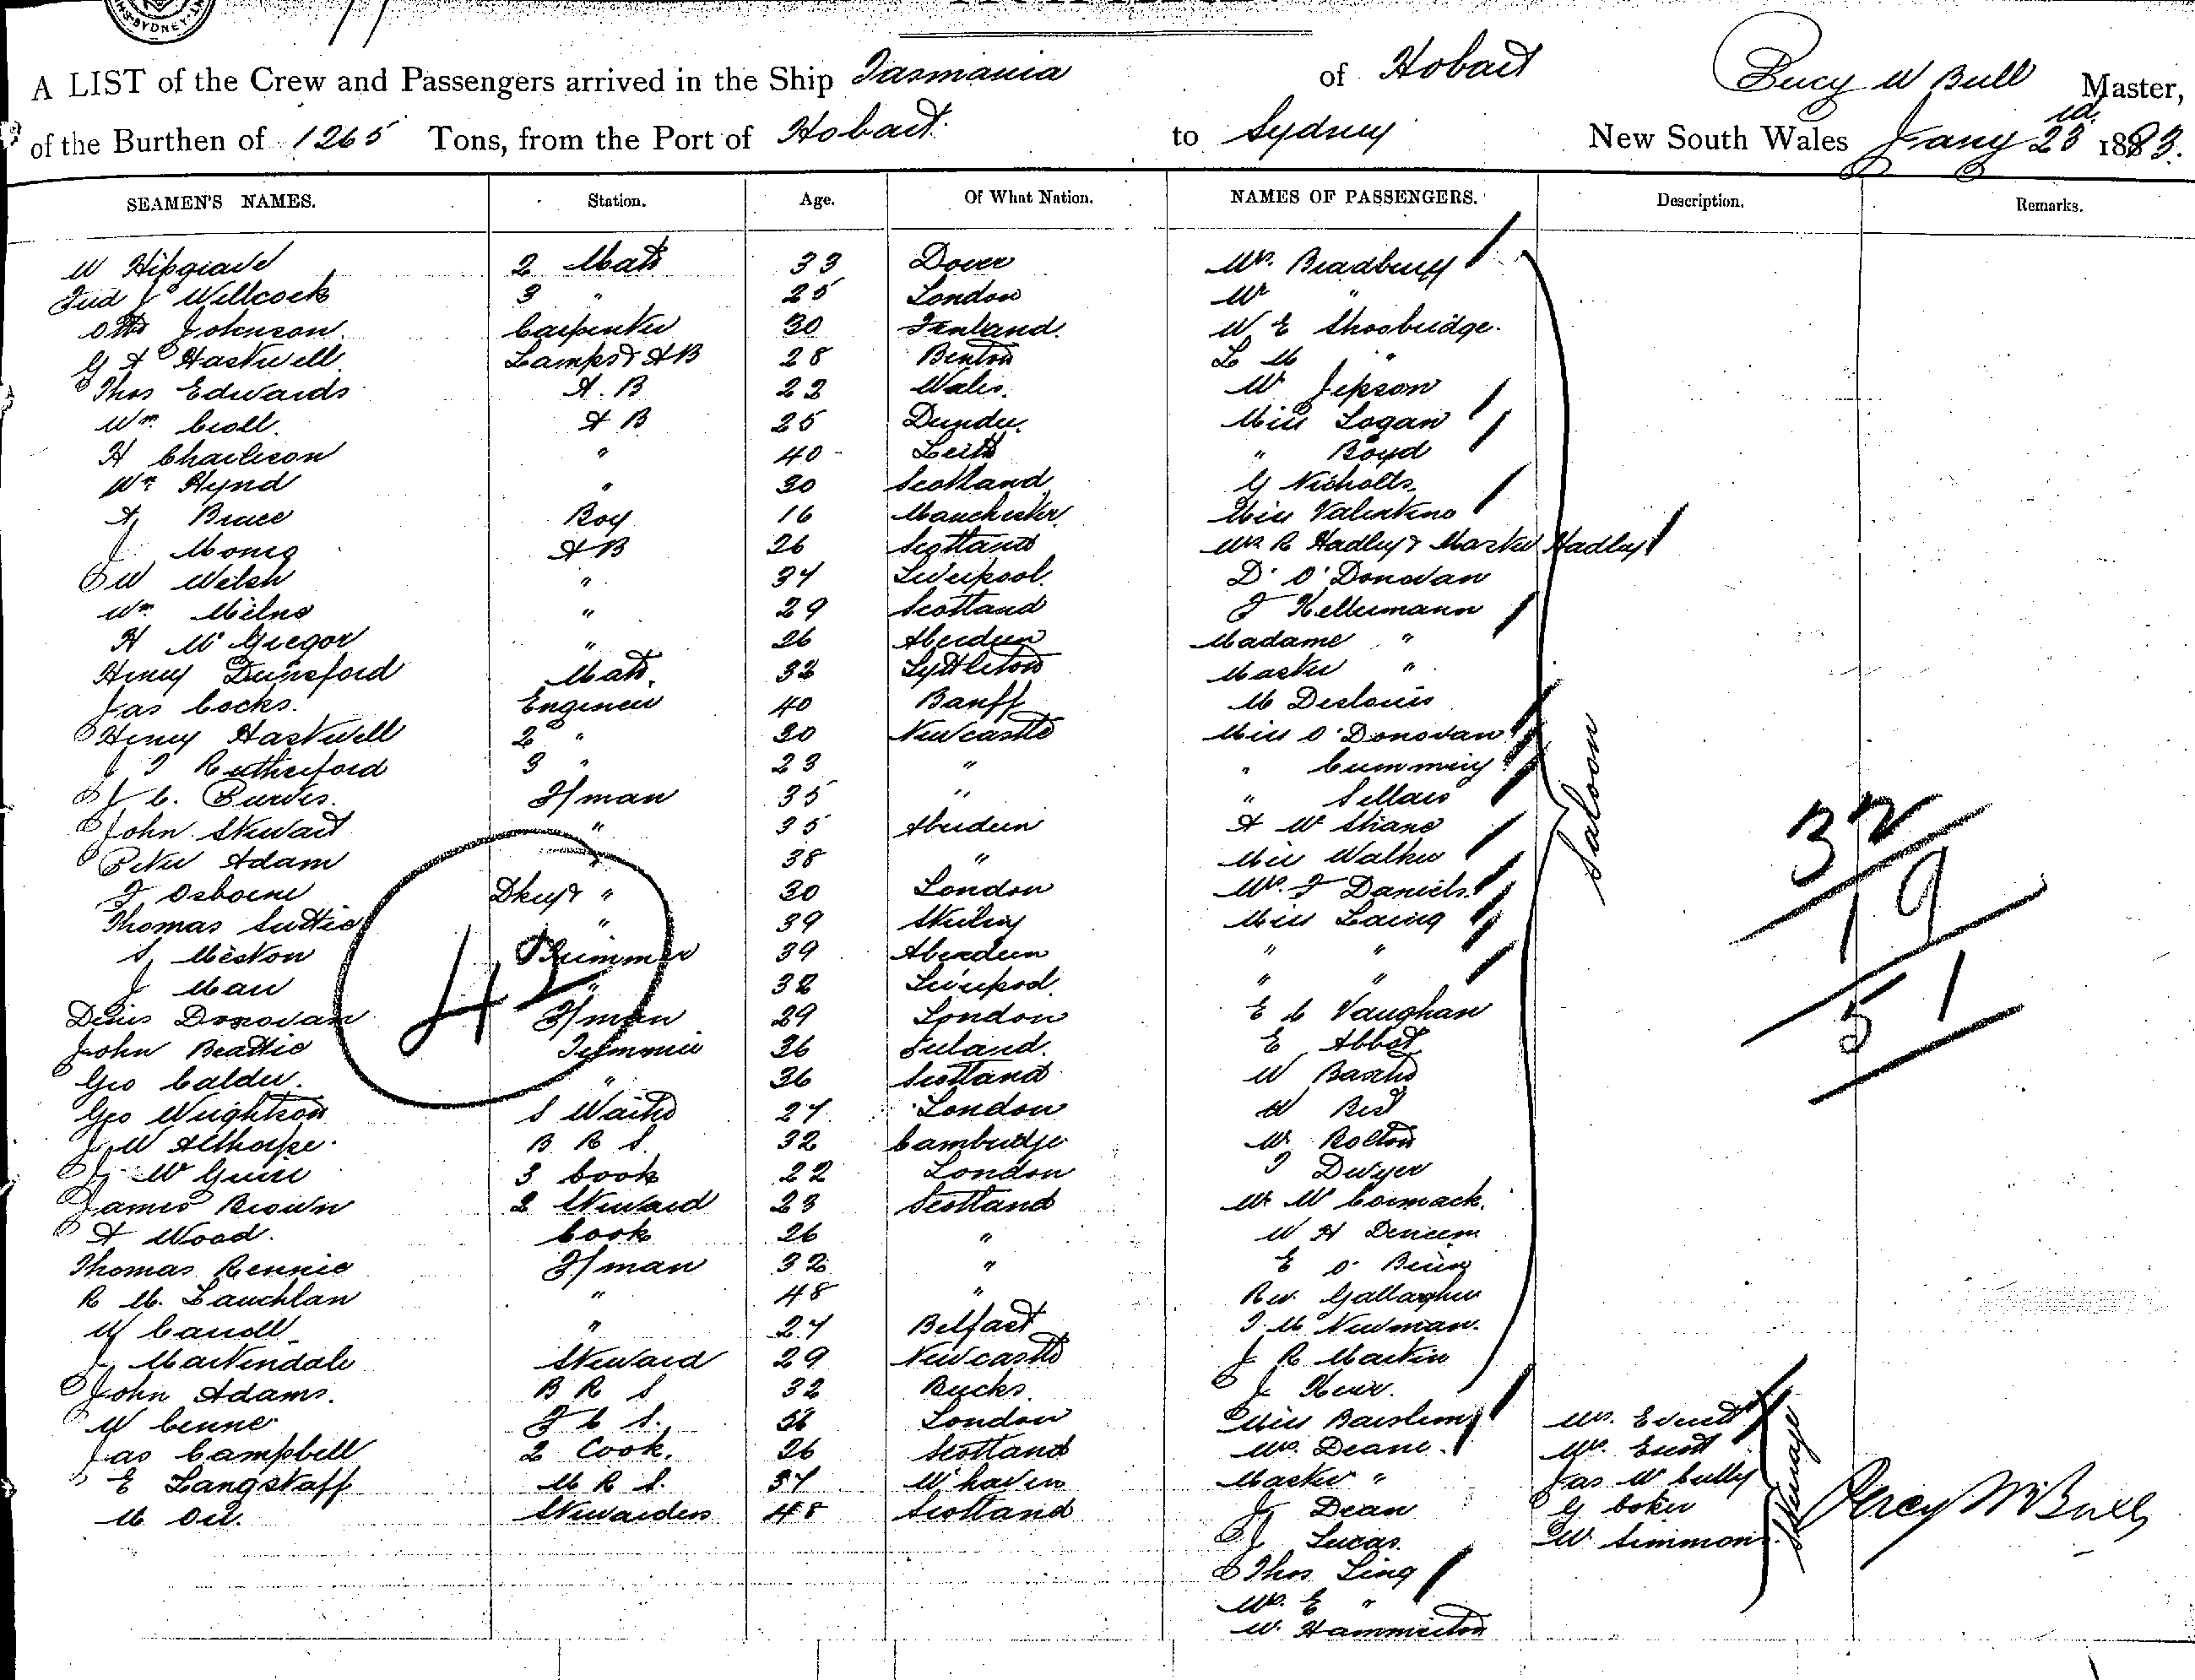 A LIST of the Crew and Passengers arrived in the Ship Tasmania of Hobart Percy W Bull Master,
of the Burthen of 1265 Tons, from the Port of Hobart to Sydney New South Wales Jany 23rd 1883.
SEAMEN'S NAMES. Station. Age. Of What Nation. NAMES OF PASSENGERS. Description. Remarks.
W Hipgrave 2 Mate 33 Dover Mrs. Bradbury
Fred J Willcock 3 " 25 London Mr "
Otto Johnson Carpenter 30 Finland. W E Shoobridge.
G A Haswell Lamps & AB 28 Benton L M "
Thos Edwards A. B 22 Wales. W Jepson
Wm. Croll. A B 25 Dundee. Miss Logan
H Charleson " 40 Leith " Boyd
Wm Hynd " 30 Scotland G Nicholls.
A Bruce Boy 16 Manchester Miss Valentine
J Money AB 26 Scotland Mrs R Hadley & Master Hadley
W Welsh " 34 Liverpool. D. O'Donovan
Wm Milne " 29 Scotland F Kellermann
H McGregor " 26 Aberdeen Madame "
Henry Dunsford Mate. 32 Lyttleton Master "
Jas Cocks. Engineer 40 Banff M Deslouis
Henry Haswell 2 " 30 Newcastle Miss O'Donovan
J T Rutherford 3 " 23 " " Cumming
J C. Purves. F/man 35 " " Sellars
John Stewart " 35 Aberdeen A W Shane
Peter Adam " 38 " Miss Walker
F Osborne Dkey & " 30 London Mrs. F Daniels.
Thomas Suttie " 39 Stirling Miss Laing
S Meston Trimmer 39 Aberdeen " "
J Mau " 32 Liverpool. " "
Denis Donovan F/man 29 London E C Vaughan
John Beattie Trimmer 26 Ireland. E Abbot
Geo Calder. " 36 Scotland W
Geo Weightson S Waiter 27 London W Best
J W Althorpe. B R S. 32 Cambridge W. Bolton
J W Grieve 3 Cook 22 London T Dwyer
James Brown 2 Steward 23 Scotland W. McCormack.
A Wood. Cook 26 " W H
Thomas Rennie F/man 32 " E O'Brien
R M. Lauchlan " 48 " Rev. Gallagher
W Carroll " 27 Belfast T. M Newman.
J Martindale Steward 29 Newcastle J R Martin
John Adams. B R S 32 Bucks. J Keir.
W F C S. London Miss Mrs. Everett
Jas Campbell 2 Cook. 26 Scotland Mrs. Deane. Mrs.
E Langstaff M R S. 37 W'haven Master " Jas McCully
M Orr. Stewardess 48 Scotland J Dean G Coker
J Lucas. W. Simmons
Thos Ling
Mrs. E "
W. Hammerton
Saloon
Steerage
42
32
19
51
Percy W Bull